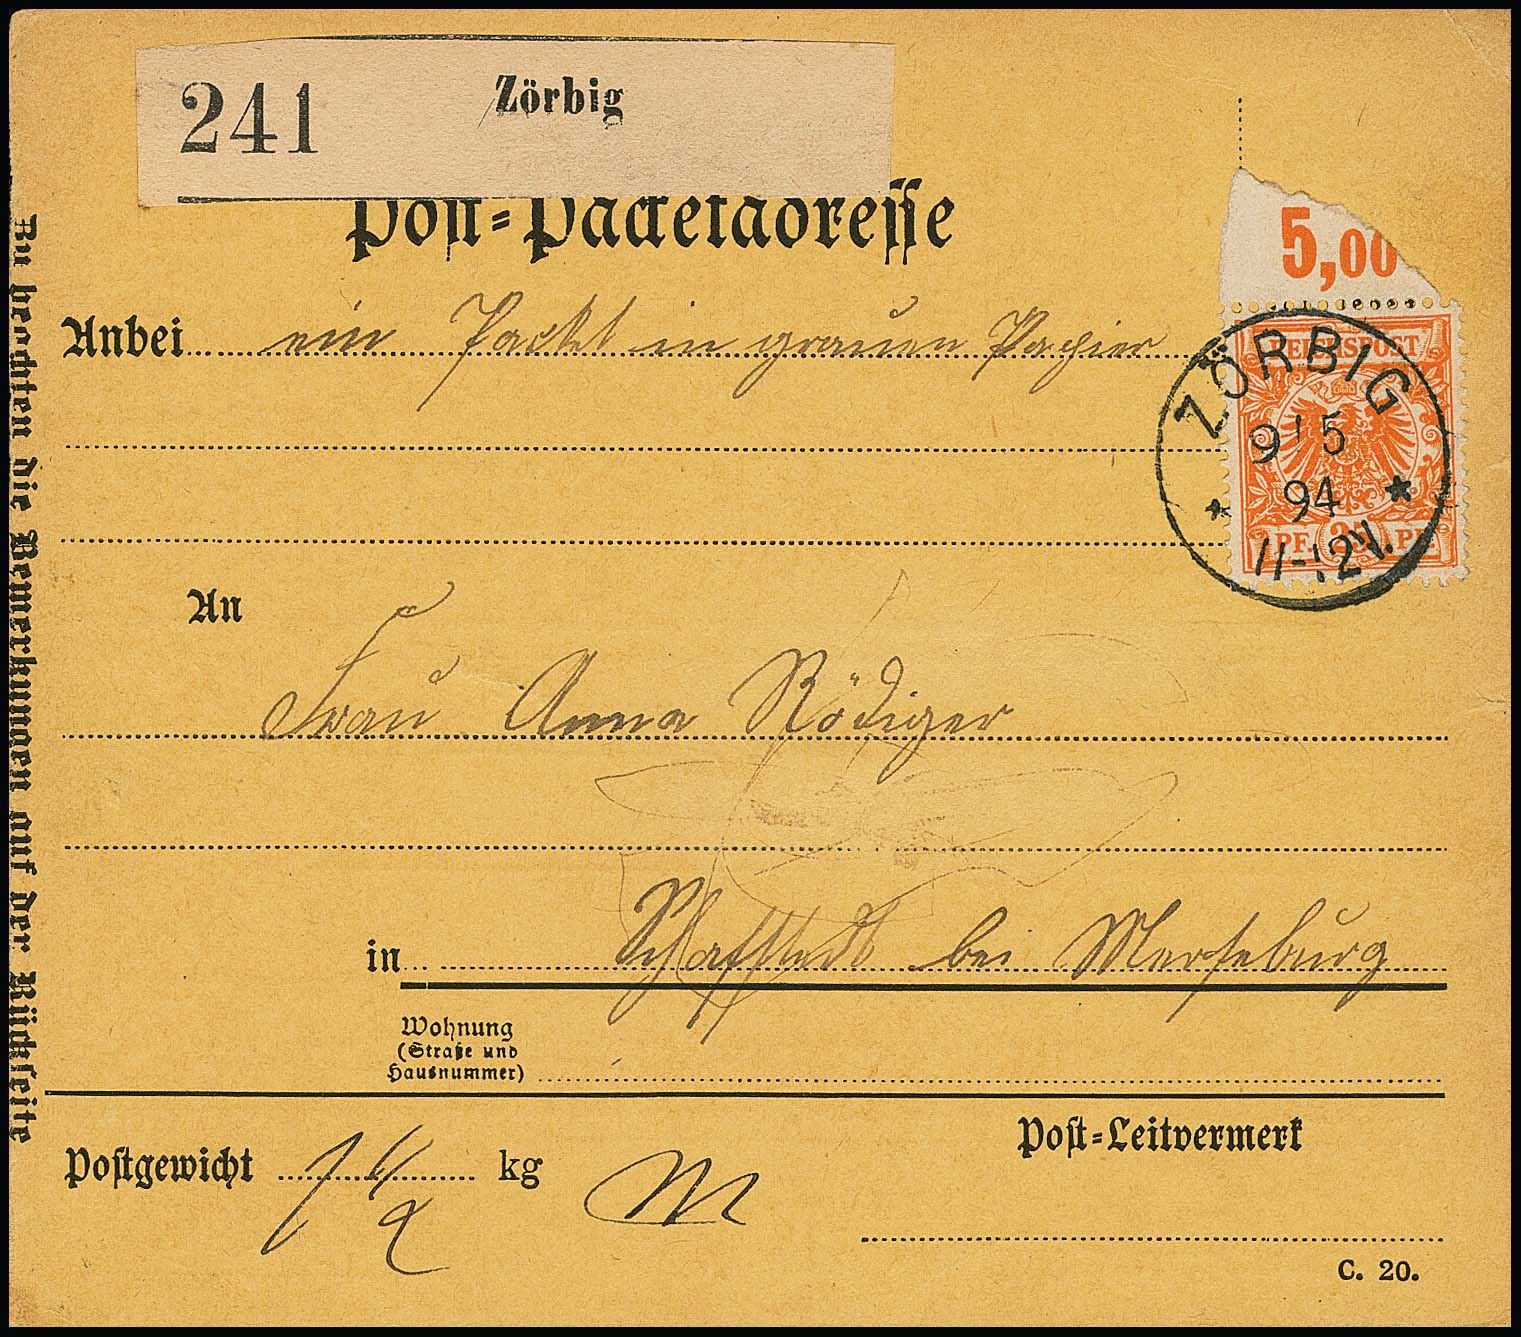 241 Zörbig
Post-Packetadresse
5,00
Anbei ein Packet in grauen Papier
REICHSPOST
ZÖRBIG
9 5
94
11-12V.
PF. 25 PF.
An
Frau Anna Rödiger
in Schafstedt bei Merseburg
Wohnung
(Straße und
Hausnummer)
Postgewicht 1 1/2 kg M
Post-Leitvermerk
C. 20.
Zu beachten die Bemerkungen auf der Rückseite